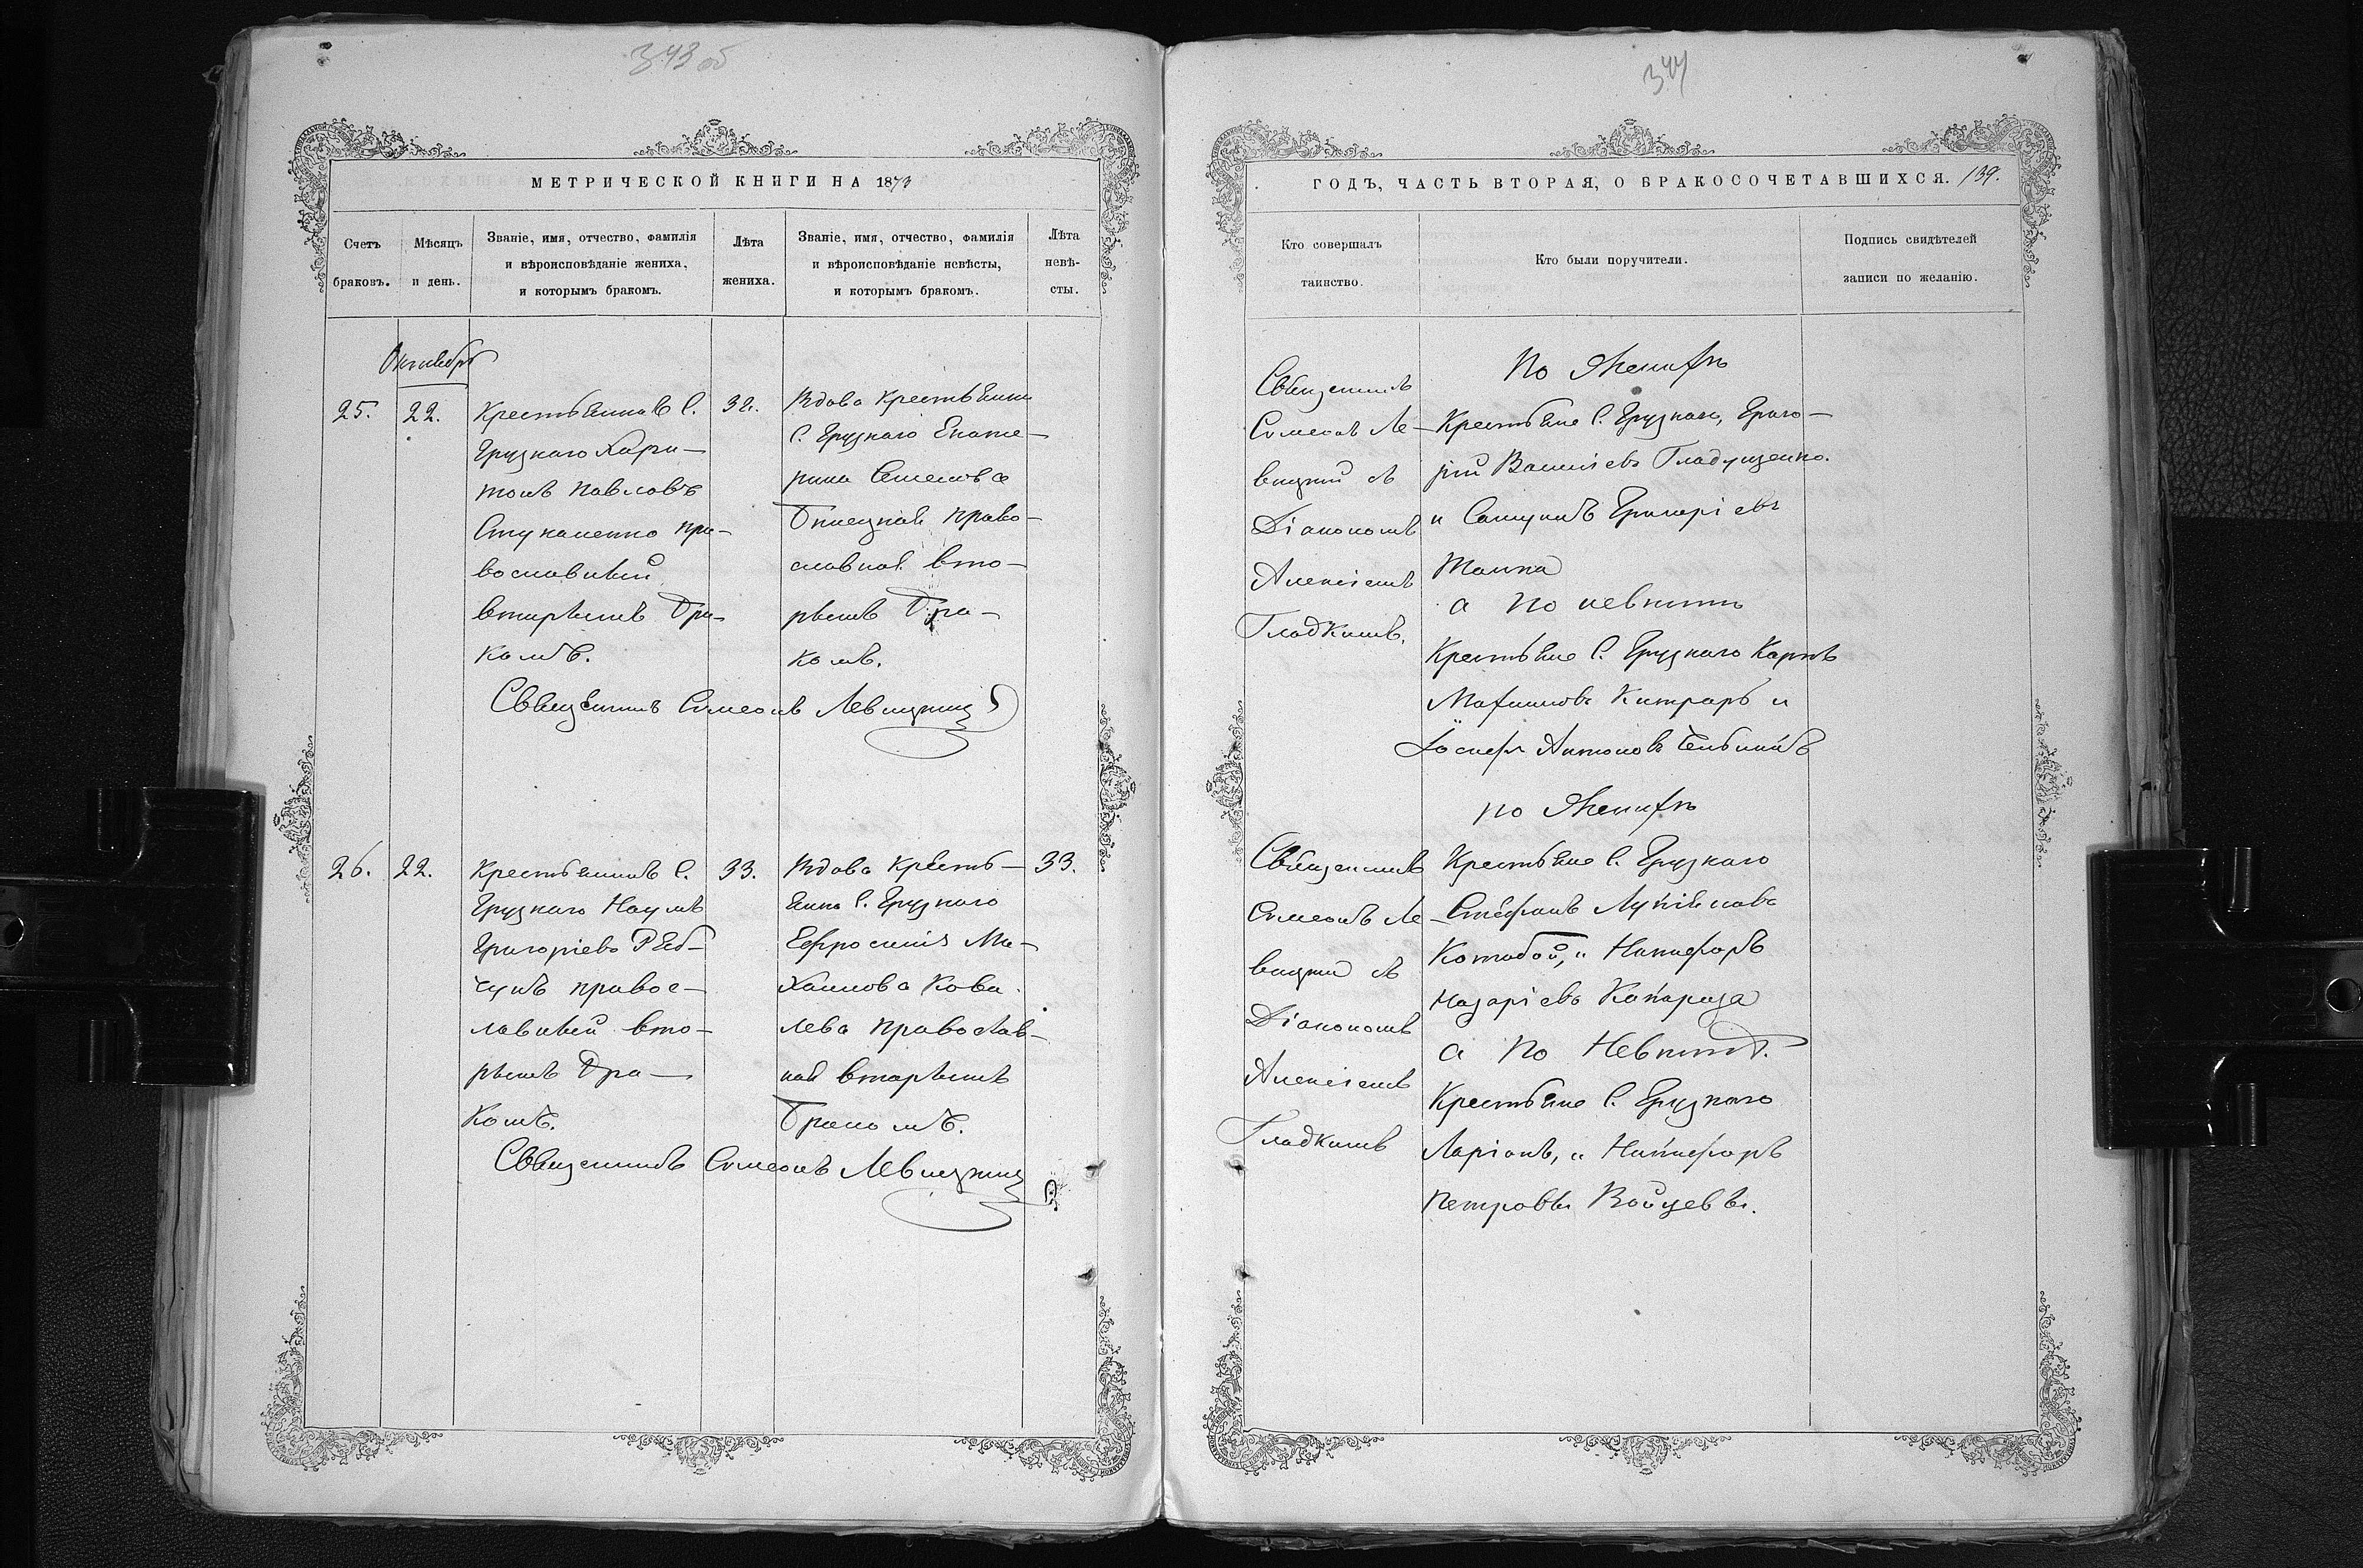 343 об
МЕТРИЧЕСКОЙ КНИГИ НА 1873
Счетъ браковъ.
Мѣсяцъ и день.
Званіе, имя, отчество, фамилія
и вѣроисповѣданіе жениха,
и которымъ бракомъ.
Лѣта жениха.
Званіе, имя, отчество, фамилія
и вѣроисповѣданіе невѣсты,
и которымъ бракомъ.
Лѣта невѣ-
сты.
Октябрь
25.
22.
Крестьянинъ С.
Грузкаго Хари-
тонъ Павловъ
Стукаленко пра-
вославный
вторымъ бра-
комъ.
32.
Вдова крестьянка
С. Грузкаго Екате-
рина Семенова
право-
славная вто-
рымъ бра-
комъ.
Священникъ Симеонъ Левицкий
26.
22.
Крестьянинъ С.
Грузкаго Наумъ
Григоріевъ Ряб-
чунъ правос-
лавный вто-
рымъ бра-
комъ.
33.
Вдова кресть-
янка С. Грузкаго
Ефросинія Ми-
хаилова Кова-
лева православ-
ная вторымъ
бракомъ.
33.
Священникъ Симеонъ Левицкий
344
ГОДЪ, ЧАСТЬ ВТОРАЯ, О БРАКОСОЧЕТАВШИХСЯ. 139.
Кто совершалъ
таинство.
Кто были поручители.
Подпись свидѣтелей
записи по желанію.
Священникъ
Симеонъ Ле-
вицкий съ
Діакономъ
Алексіемъ
Гладкимъ.
По Женихѣ
Крестьяне С. Грузкаго, Григо-
рий Василіевъ Гладущенко.
и Григоріевъ
а по невѣстѣ
Крестьяне С. Грузкаго Карпъ
Максимовъ и
Іосифъ Антоновъ
Священникъ
Симеонъ Ле-
вицкий съ
Діакономъ
Алексіемъ
Гладкимъ
по Женихѣ
Крестьяне С. Грузкаго
Стефанъ Лукіяновъ
и Никифоръ
Назаріевъ
а По Невѣстѣ.
Крестьяне С. Грузкаго
Ларіонъ, и Никифоръ
Петровы Войцевы.